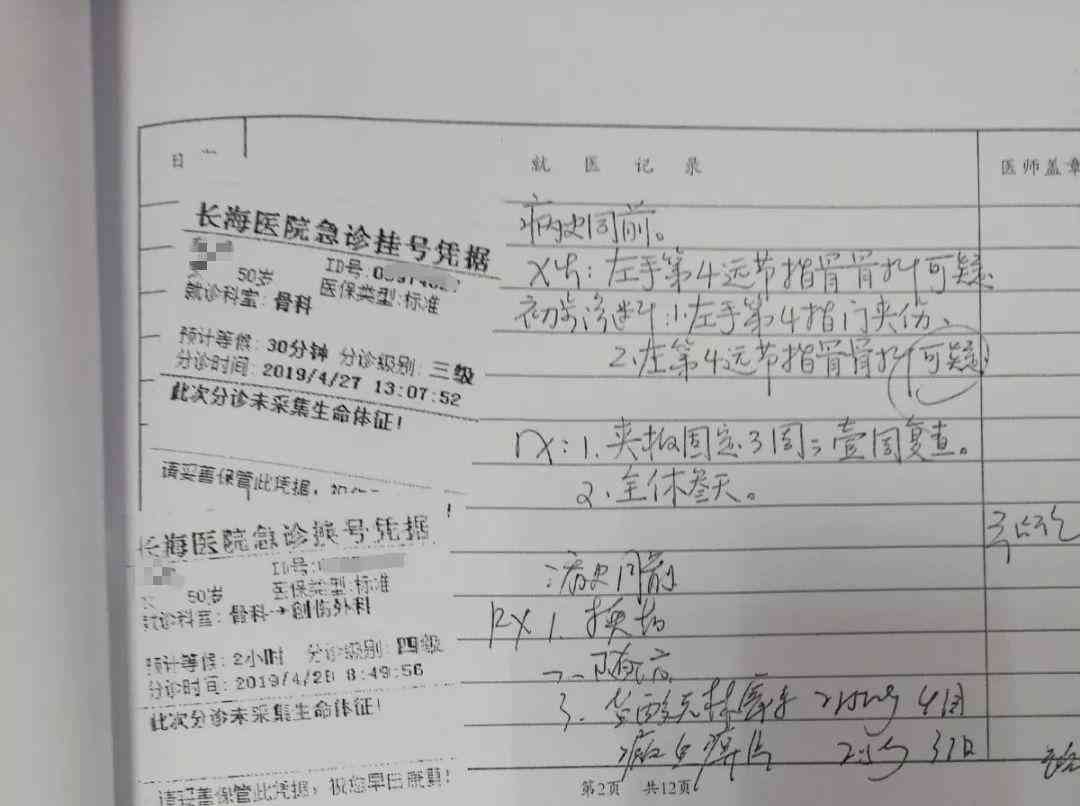 日
就医记录
医师盖章
长海医院急诊挂号凭据
50岁 ID号:
就诊科室: 骨科 医保类型:标准
预计等候: 30分钟 分诊级别: 三级
分诊时间: 2019/4/27 13:07:52
此次分诊未采集生命体征!
请妥善保管此凭据,
病史同前。
X片: 左手第4远节指骨骨折可疑
初步诊断: 1.左手第4指门夹伤、
2.左第4远节指骨骨折可疑
rx: 1. 夹板固定3周; 壹周复查。
2. 全休叁天。
长海医院急诊挂号凭据
50岁 ID号:
医保类型:标准
就诊科室: 骨科→创伤外科
预计等候: 2小时 分诊级别: 四级
分诊时间: 2019/4/28 8:49:56
此次分诊未采集生命体征!
请妥善保管此凭据, 祝您早日康复!
: 病史同前
RX 1. 换药
3.
第2页 共12页